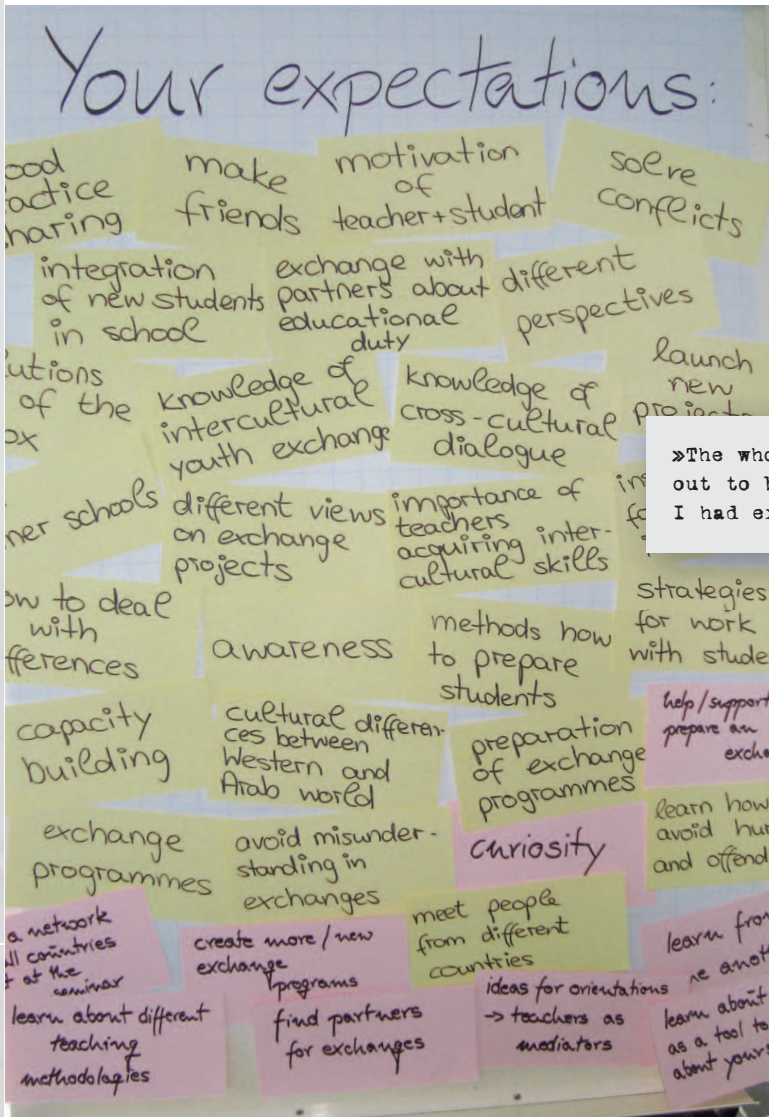 Your expectations:
make
friends
motivation
of
teacher+student
solve
conflicts
integration
of new students
in school
exchange with
partners about
educational
duty
different
perspectives
of the
knowledge of
intercultural
youth exchange
knowledge of
cross-cultural
dialogue
launch
new
schools
different views
on exchange
projects
importance of
teachers
acquiring inter-
cultural skills
»The
out to
I had
to deal
with
awareness
methods how
to prepare
students
strategies
for work
with
capacity
building
cultural differen-
ces between
Western and
Arab world
preparation
of exchange
programmes
help/support
prepare an
exchange
programmes
avoid misunder-
standing in
exchanges
curiosity
learn how
avoid
and
a network
countries
at the
seminar
create more/new
exchange
programs
meet people
from different
countries
learn
learn about different
teaching
methodologies
find partners
for exchanges
ideas for orientations
→ teachers as
mediators
learn about
as a tool to
about